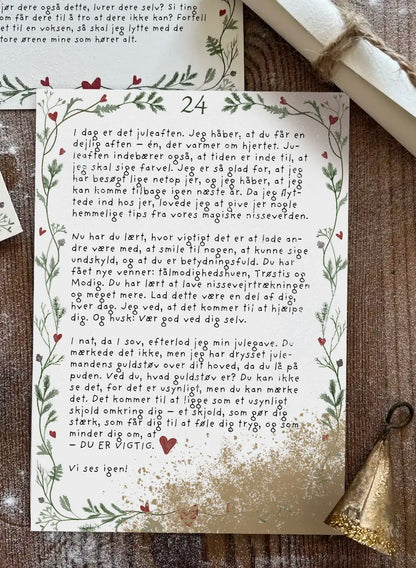 jør dere også dette, lurer dere selv? Si ting
som får dere til å tro at dere ikke kan? Fortell
et til en voksen, så skal jeg lytte med de
tore ørene mine som hører alt.
24
I dag er det juleaften. Jeg håber, at du får en
dejlig aften – én, der varmer om hjertet. Ju-
leaften indebærer også, at tiden er inde til, at
jeg skal sige farvel. Jeg er så glad for, at jeg
har besøgt lige netop jer, og jeg håber, at jeg
kan komme tilbage igen næste år. Da jeg flyt-
tede ind hos jer, lovede jeg at give jer nogle
hemmelige tips fra vores magiske nisseverden.
Nu har du lært, hvor vigtigt det er at lade an-
dre være med, at smile til nogen, at kunne sige
undskyld, og at du er betydningsfuld. Du har
fået nye venner: tålmodighedshuen, Trøstis og
Modig. Du har lært at lave nissevejrtrækningen
og meget mere. Lad dette være en del af dig,
hver dag. Jeg ved, at det kommer til at hjælpe
dig. Og husk: Vær god ved dig selv.
I nat, da I sov, efterlod jeg min julegave. Du
mærkede det ikke, men jeg har drysset jule-
mandens guldstøv over dit hoved, da du lå på
puden. Ved du, hvad guldstøv er? Du kan ikke
se det, for det er usynligt, men du kan mærke
det. Det kommer til at ligge som et usynligt
skjold omkring dig – et skjold, som gør dig
stærk, som får dig til at føle dig tryg, og som
minder dig om, at
– DU ER VIGTIG.
Vi ses igen!